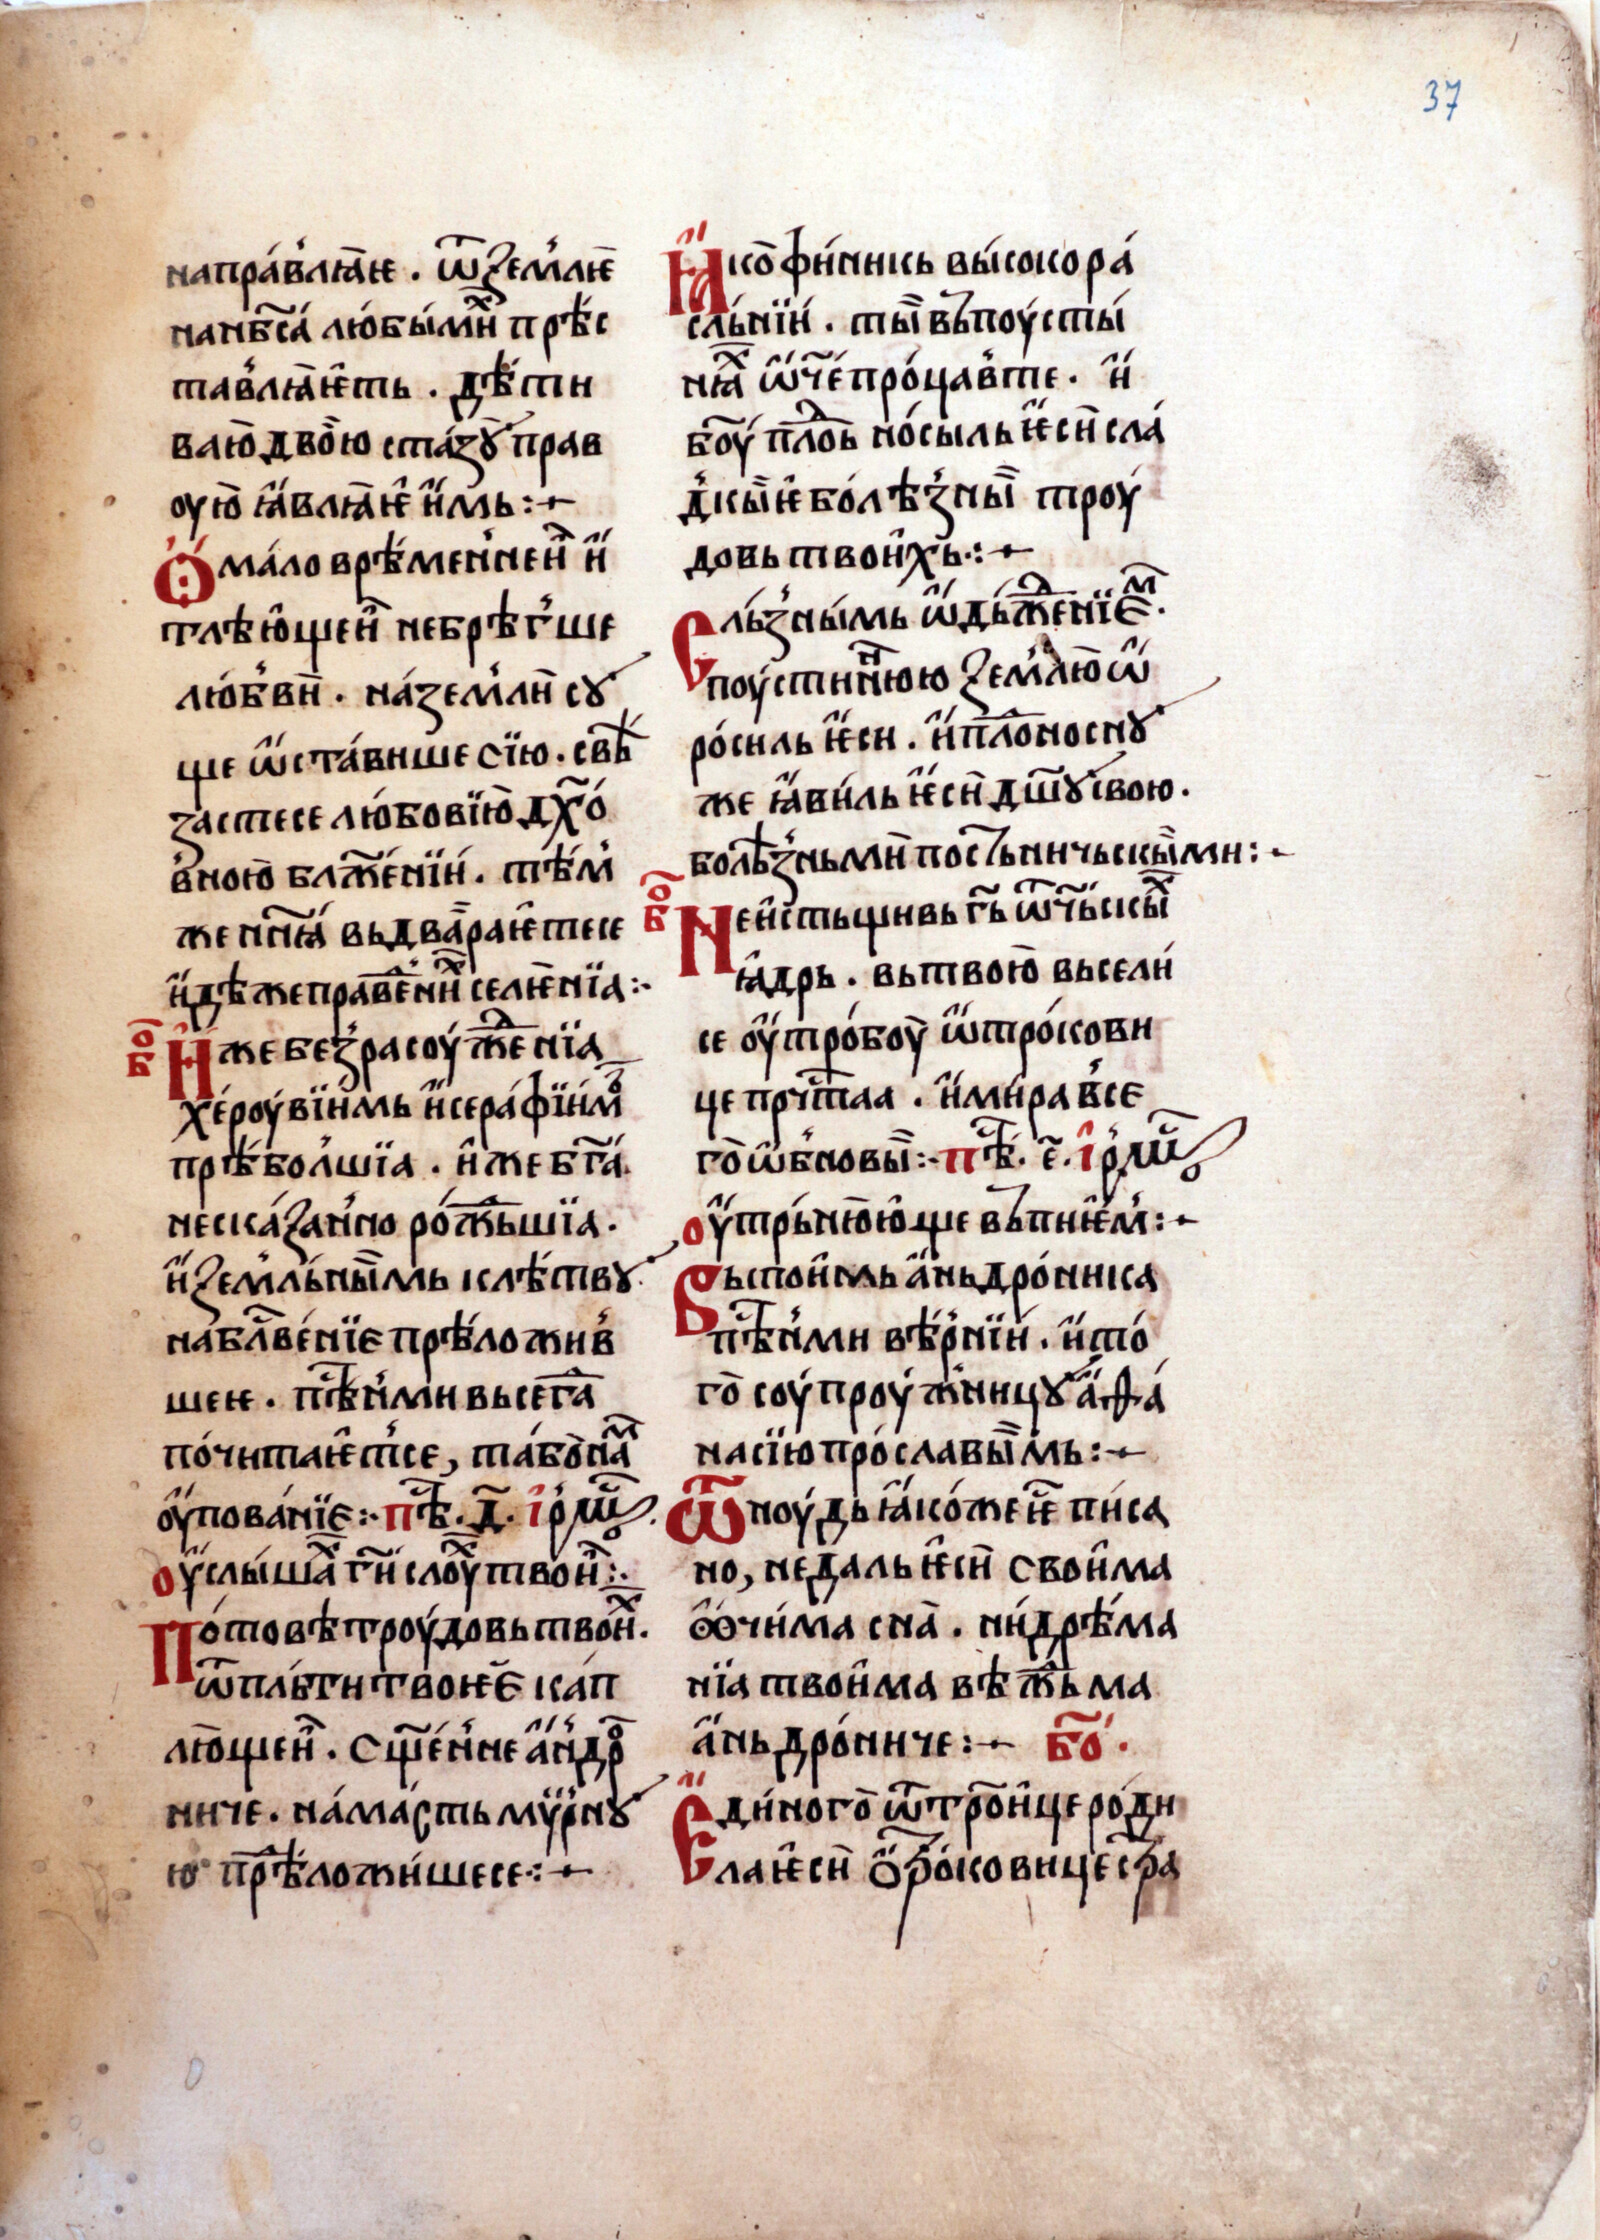 37
напра́влꙗѥ . ѿ землѥ
на нб҃са́ лю́бы́миⷯ прѣ́с
та́влꙗ́ѥть . дѣ́ти
ваю̀ дво̀ю ста́зꙋ прав
оую̀ ꙗ҆влꙗѥ и҆́мь :⁓
Ѻ҆ ма́ло врѣ́меннеи и҆
тлѣю̑щеи небрѣг'ше
лю́бви . на́ землѝ сꙋ
ще ѡ҆ста́више сїю . свѣ
застесе лю́бовїю̀ дх҃о́
вною̀ бл҃же́нїи́ . тѣ́м'
же нн҃ꙗ́ вьдва́раѥтесе
и҆дѣже праве́ниⷯ селѥ́нїа :⁓
б҃о И҆же без'расоуⷤ҇де́нїа
хе́роувїи́мь и҆ сера́фїи́мⷪ
прѣ́бол'шїа . и҆же б҃га́
неска́зан'но ро́жⷣьшїа .
и҆ земл́ьны̏мь клѣ́твꙋ
на бл҃ве́нїе прѣ́ложив
шеѥ . пѣⷭ҇н'ми вьсегⷣа
по́читаѥ҆мⷭ҇се , та́ бо̀ наⷨ
оу҆пова́нїе :⁓ пѣⷭ҇ . д҃ . і҆рмⷪ҇
оу҆слы́шаⷯ г҃и слоуⷯ твои :⁓
По́товѣ троу́довь твоиⷯ .
ѿ пл́ьти твоѥе ка́п
лю̀щеи . сщ҃е́н'не а҆ндрⷪ
ниче . на́ ма́сть мѵ̈́рнꙋ
ю прѣ́ложи́шесе :⁓
Ꙗ҆ко̀ фи́никь высоко ра́
сл́ьнїи́ . ты̏ вь поу́сты́
нꙗⷯ ѡ҆ч҃е́ про́цав'те . и҆
б҃оу́ плоⷣ но́сыль ѥ҆сѝ сла́
д'кы̏ѥ бо́лѣз'ны̏ троу
довь твои҆хь :⁓
Сльз'ны́мь ѡ҆дьжⷣе́нїеⷨ .
поу́стиннюю землю̀ ѡ҆
ро́силь ѥ҆си . и҆ плⷪ҇доноснꙋ
же ꙗ҆ви́ль ѥ҆сѝ дш҃ꙋ свою .
болѣз'ньмѝ постьничьскы̏ми :⁓
б҃о Неи҆стьщивь гⷭ҇ь ѿчьскыⷯ
ꙗ҆дрь . вь твою̀ высели́
се оу҆тро́боу̀ ѡ҆тро́кови
це прчⷭ҇таа . и҆ ми́ра в'се
го̀ ѡ҆б'новы̏ :⁓ пѣⷭ҇ . е҃ . і҆рмⷪ҇
оу҆тр́ьню̀ю̑ще вьпиѥ҆м' :⁓
Вьспои҆мь а҆ньдро́ника
пѣⷭ҇н'ми вѣ́рнїи́ . и҆ то́
го̀ соупроу́ж'ницꙋ а҆ѳа́
насїю про́славы̏мь :⁓
Ѿноу́дь ꙗ҆ко́же ѥⷭ҇ пи́са
но , не даль ѥ҆сѝ свои҆ма
ꙫчи́ма сна̀ . ни́ дрѣ́ма
нїа твои҆ма вѣжⷣьма
а҆ньдро́ниче :⁓ б҃о .
Е҆ди́ного̀ ѿ трⷪ҇и҆це ро́ди
ла ѥ҆сѝ ѻ҆троковице стра